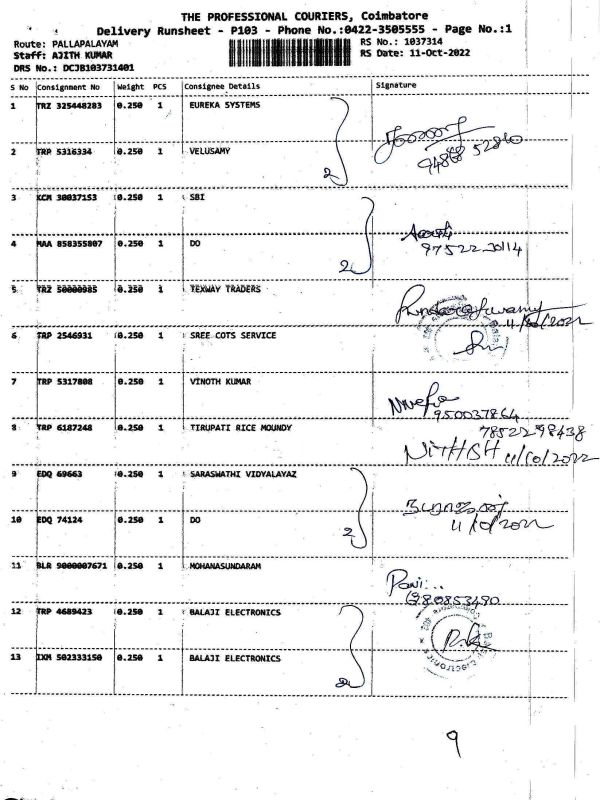 THE PROFESSIONAL COURIERS, Coimbatore
Delivery Runsheet - P103 - Phone No.:0422-3505555 - Page No.:1
Route: PALLAPALAYAM RS No.: 1037314
Staff: AJITH KUMAR RS Date: 11-Oct-2022
DRS No.: DCJB103731401
S No Consignment No Weight PCS Consignee Details Signature
1 TRZ 325448283 0.250 1 EUREKA SYSTEMS
2 TRP 5316334 0.250 1 VELUSAMY
2
3 KCM 30037153 0.250 1 SBI
4 MAA 858355807 0.250 1 DO
97522 30114
2
5 TRZ 50000985 0.250 1 TEXWAY TRADERS
11/10/2022
6 TRP 2546931 0.250 1 SREE COTS SERVICE
7 TRP 5317808 0.250 1 VINOTH KUMAR
950037864
8 TRP 6187248 0.250 1 TIRUPATI RICE MOUNDY
78522 98438
NITHISH 11/10/2022
9 EDQ 69663 0.250 1 SARASWATHI VIDYALAYAZ
10 EDQ 74124 0.250 1 DO
11/10/2022
2
11 BLR 9000007671 0.250 1 MOHANASUNDARAM
980853490
12 TRP 4689423 0.250 1 BALAJI ELECTRONICS
13 IXM 502333150 0.250 1 BALAJI ELECTRONICS
2
9